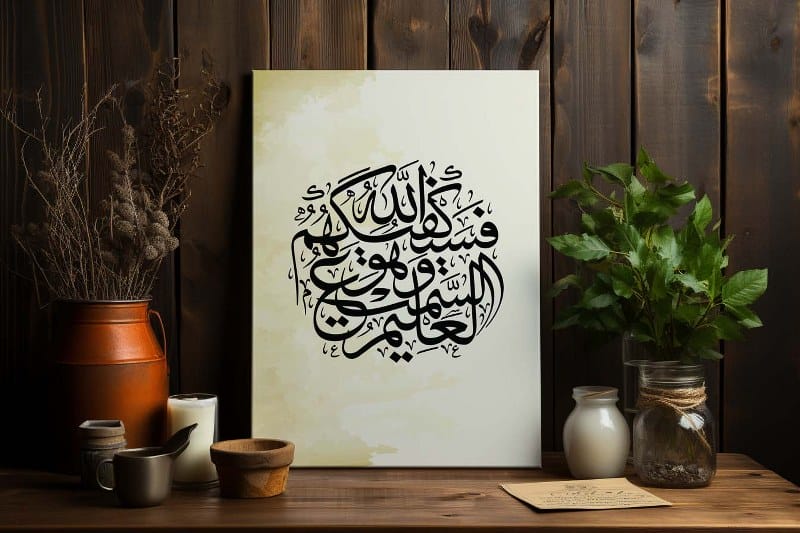 فَسَيَكْفِيكَهُمُ اللَّهُ
وَهُوَ
السَّمِيعُ
الْعَلِيمُ